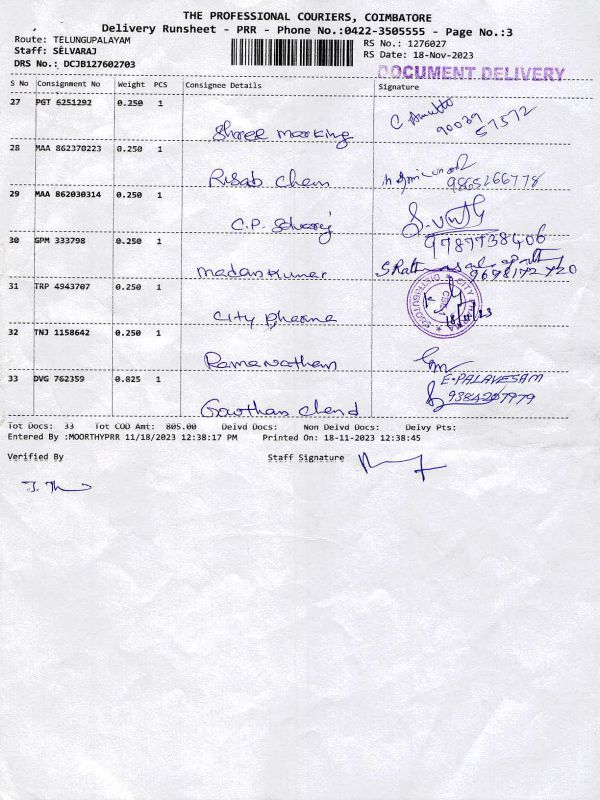 THE PROFESSIONAL COURIERS, COIMBATORE
Delivery Runsheet - PRR - Phone No.:0422-3505555 - Page No.:3
Route: TELUNGUPALAYAM RS No.: 1276027
Staff: SELVARAJ RS Date: 18-Nov-2023
DRS No.: DCJB127602703 DOCUMENT DELIVERY
S No Consignment No Weight PCS Consignee Details Signature
27 PGT 6251292 0.250 1
Shree Marking 90039 57572
28 MAA 862370223 0.250 1
Risab Chem 9865266778
29 MAA 862030314 0.250 1
C.P. 9787738406
30 GPM 333798 0.250 1
Madankumar
31 TRP 4943707 0.250 1
City Pharma
32 TNJ 1158642 0.250 1
Ramanathan
33 DVG 762359 0.825 1 E-PALAVESAM
Gowthan Chend 9384207979
Tot Docs: 33 Tot COD Amt: 805.00 Delvd Docs: Non Delvd Docs: Delvy Pts:
Entered By :MOORTHYPRR 11/18/2023 12:38:17 PM Printed On: 18-11-2023 12:38:45
Verified By Staff Signature